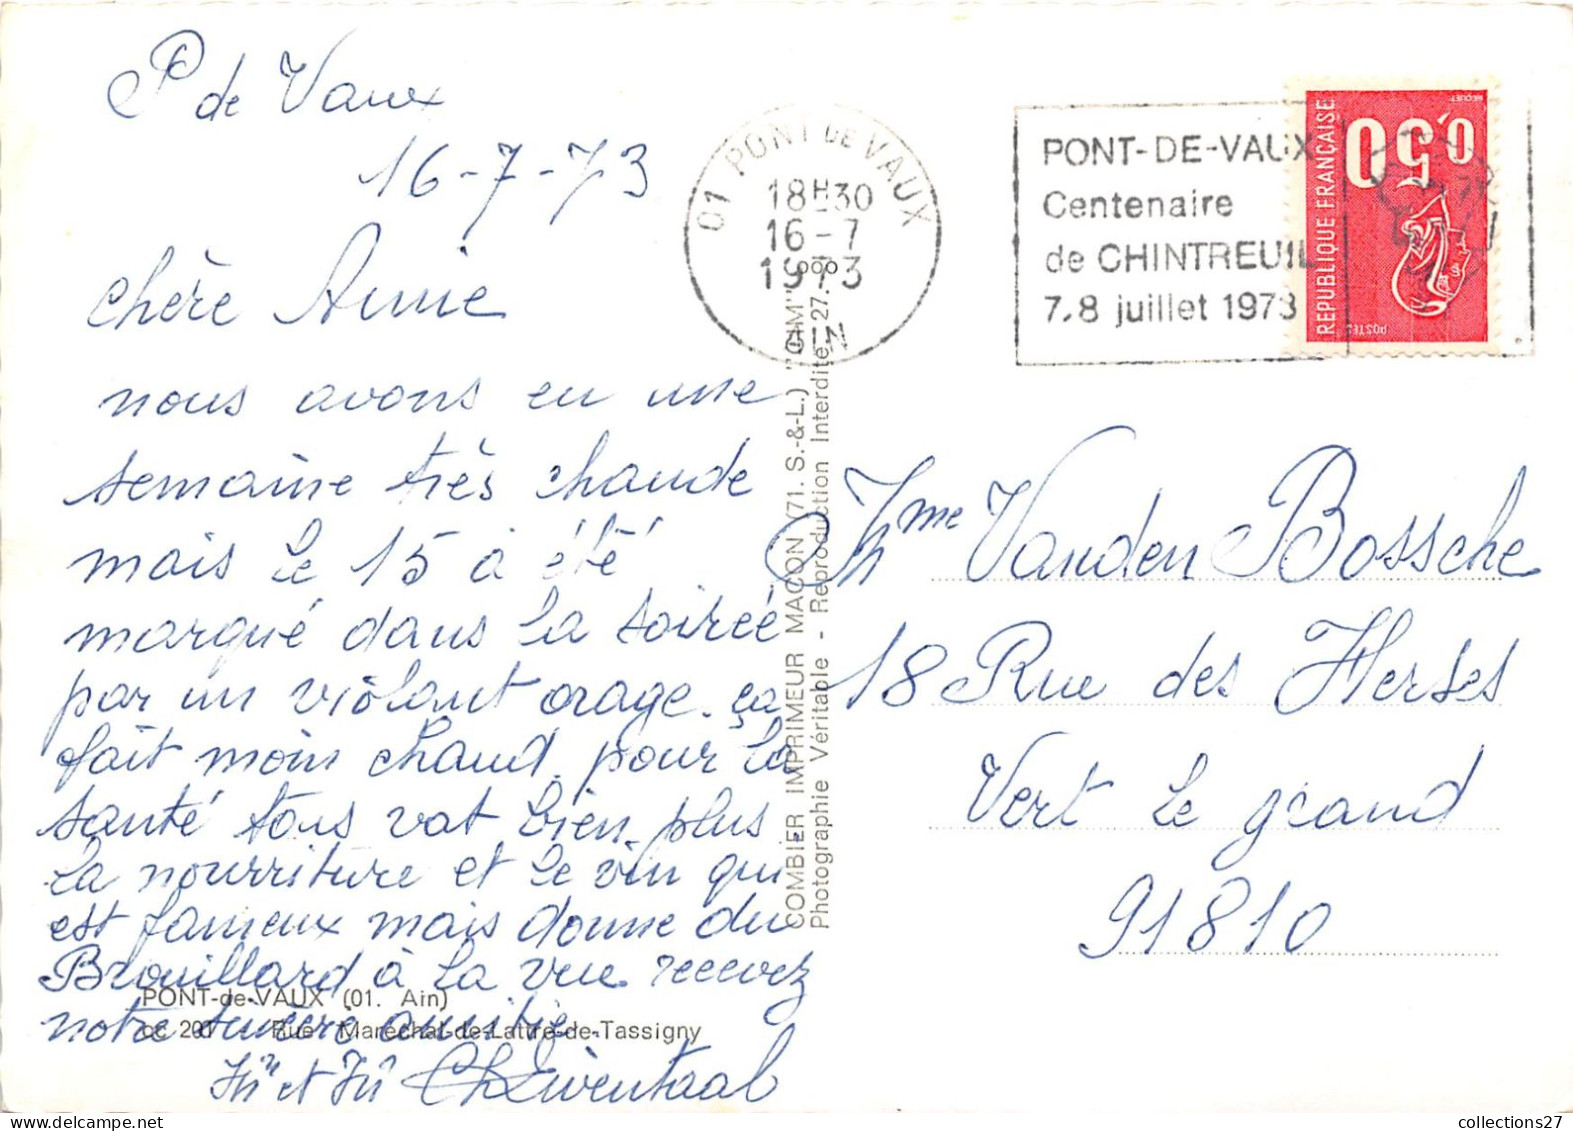 P de Vaux
16-7-73
chère Annie
nous avons eu une
semaine très chaude
mais le 15 à été
marqué dans la soirée
par un violant orage. ça
fait moin chaud. pour la
santé tous vat bien. plus
la nourriture et le vin qui
est fameux mais donne du
Brouillard à la vue. recevez
notre sincère amitié.
et
01 PONT DE VAUX
18H30
16-7
1973
AIN
PONT-DE-VAUX
Centenaire
de CHINTREUIL
7.8 juillet 1973
0,50
REPUBLIQUE FRANÇAISE
POSTES
BEQUET
COMBIER IMPRIMEUR MACON (71. S.-&-L.) "CIM"
Photographie Véritable - Reproduction Interdite 27.
Mme Vanden Bossche
18 Rue des Herses
Vert le grand
91810
PONT-de-VAUX (01. Ain)
cc 201 - Rue Maréchal-de-Lattre-de-Tassigny
collections27